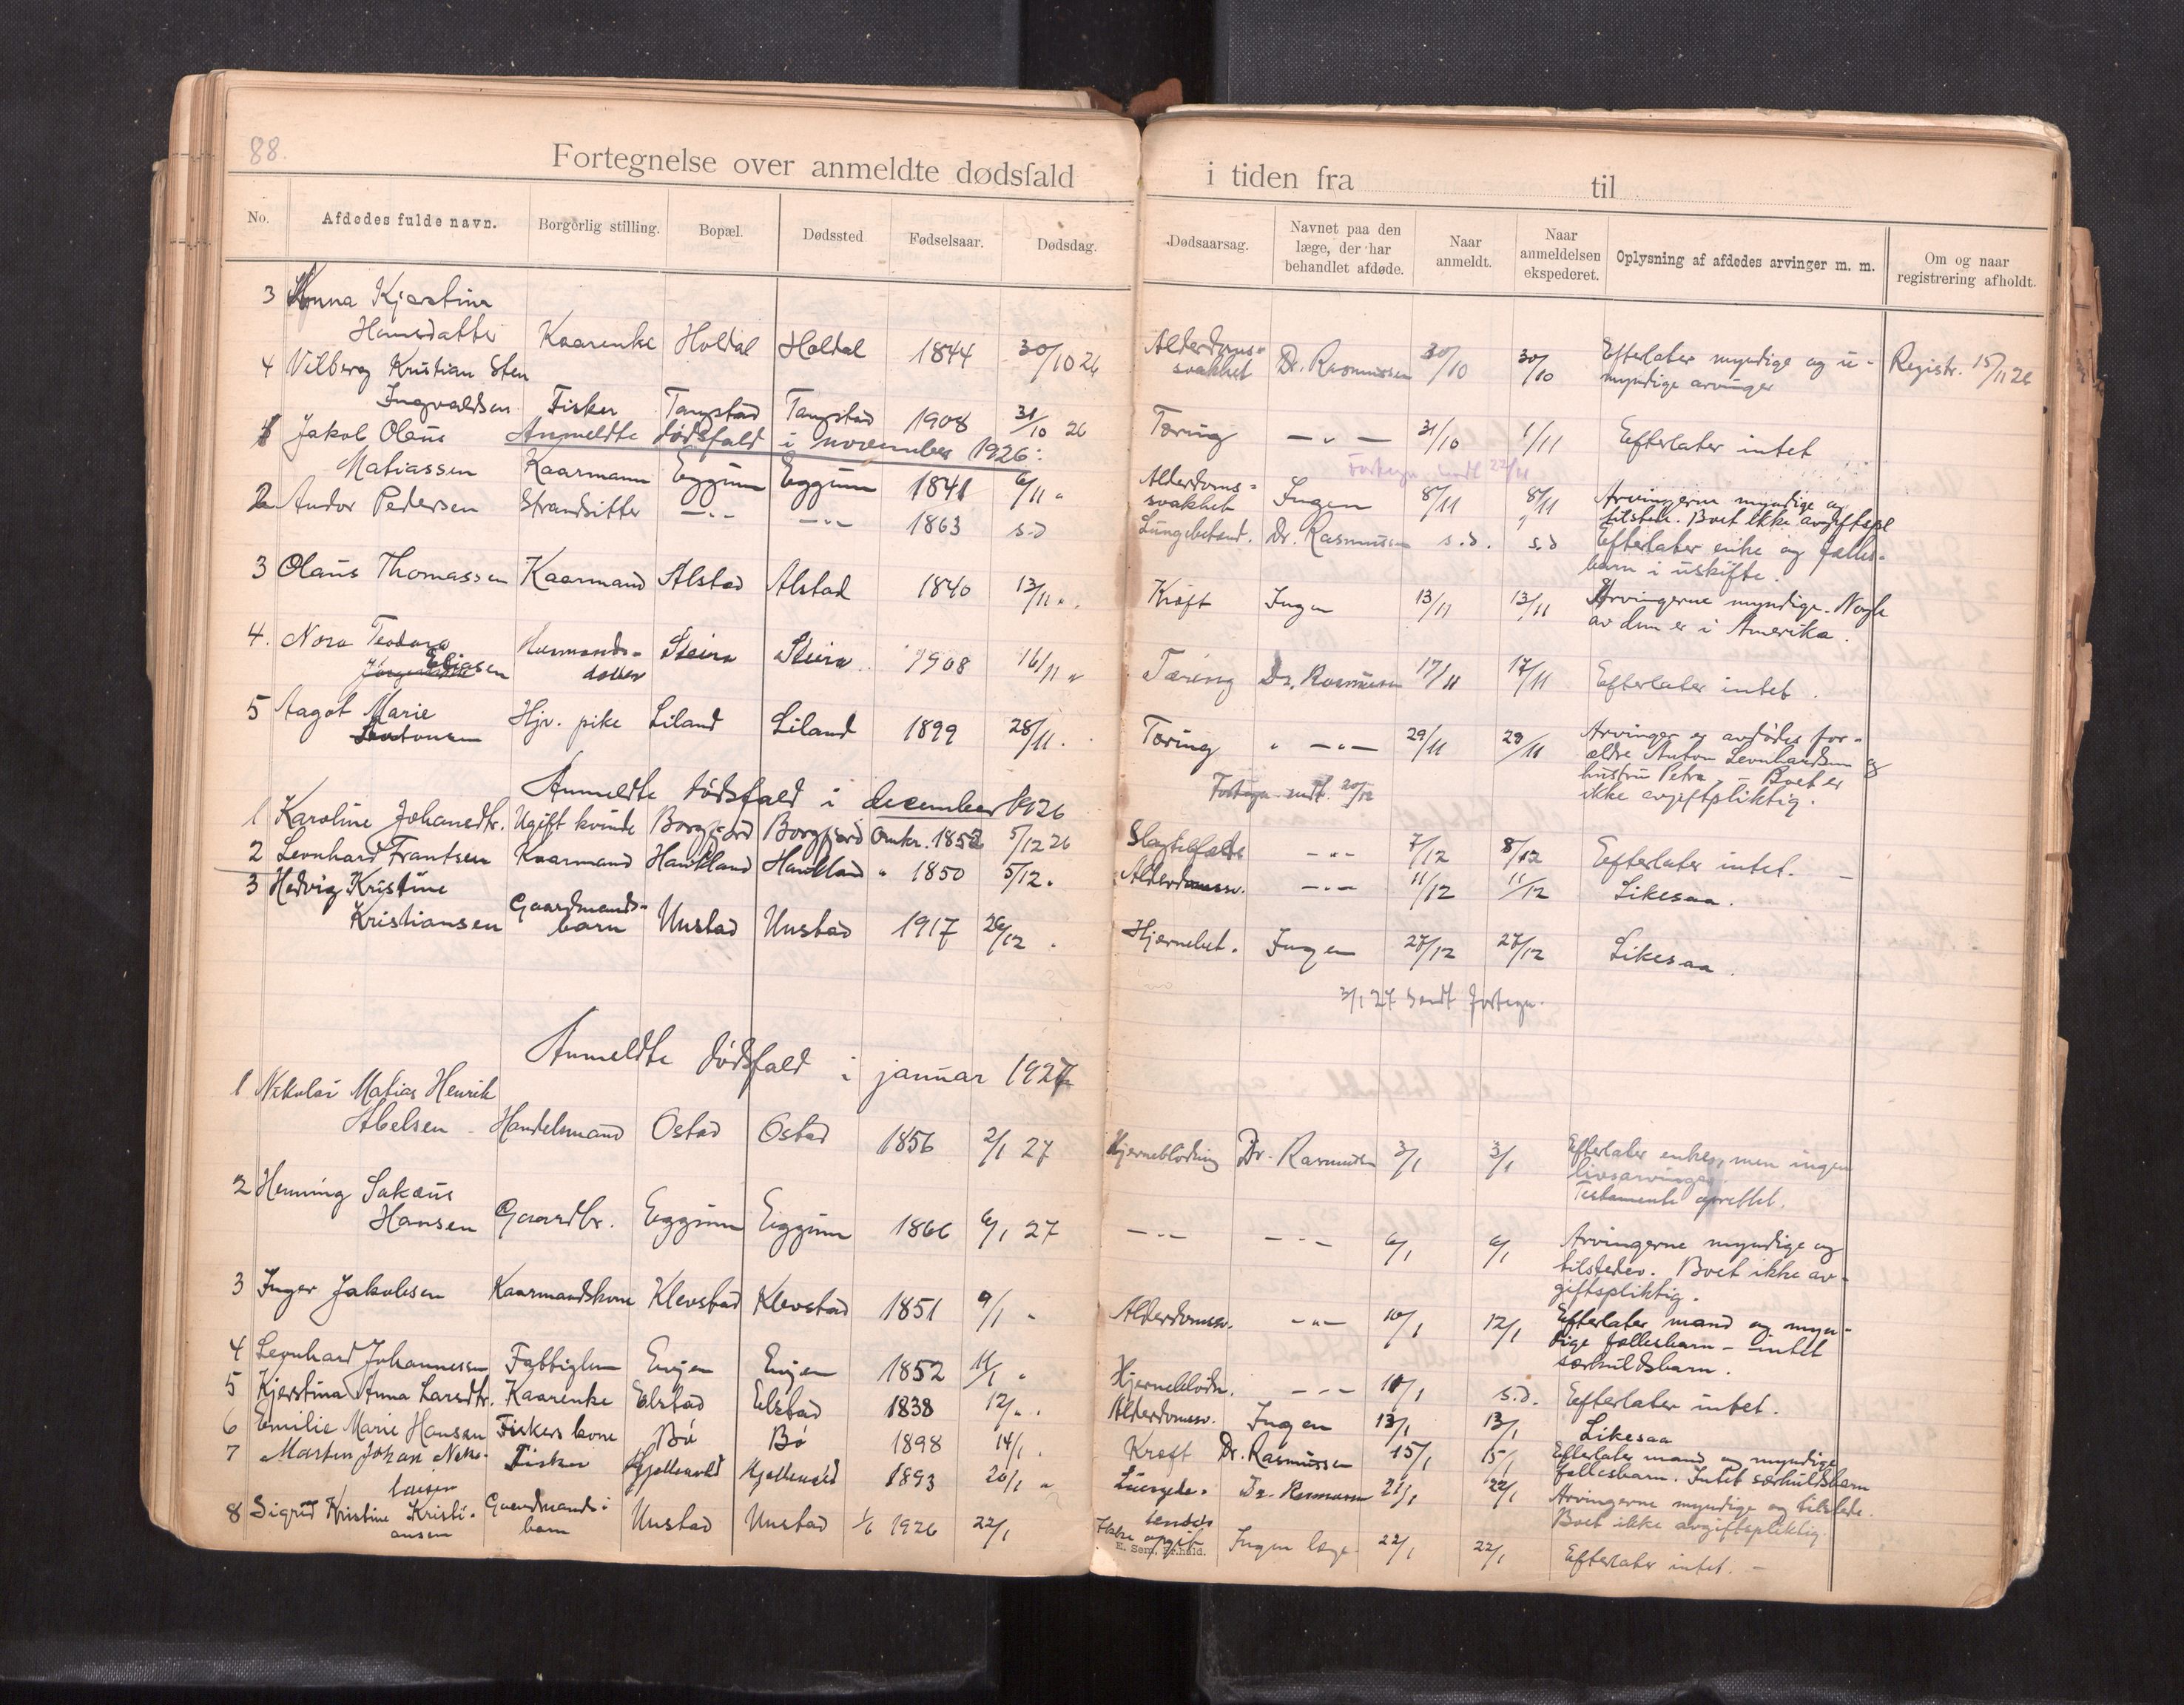 88.
Fortegnelse over anmeldte dødsfald i tiden fra til
No. Afdødes fulde navn. Borgerlig stilling. Bopæl. Dødssted Fødselsaar. Dødsdag. Dødsaarsag. Navnet paa den læge, der har behandlet afdøde. Naar anmeldt. Naar anmeldelsen ekspederet. Oplysning af afdødes arvinger m. m. Om og naar registrering afholdt.
3 Anna Kjerstina
Hansdatter Kaarenke Holdal Holdal 1844 30/10 26 Alderdoms= svakhet Dr. Rasmussen 30/10 30/10 Efterlater myndige og u- myndige arvinger Registr. 15/11 26
4 Vilberg Kristian Sten
Ingvaldsen Fisker Tangstad Tangstad 1908 31/10 26 Tæring — " — 31/10 1/11 Efterlater intet
Anmeldte dødsfald i november 1926:
Fortegn. sendt 22/11
1 Jakob Olaus
Matiassen Kaarmann Eggum Eggum 1841 6/11 " Alderdoms= svakhet Ingen 8/11 8/11 Arvingerne myndige og tilstede. Boet ikke avgiftspl
2 Andor Pedersen Strandsitter —"— —"— 1863 s.d Lungebetænd. Dr. Rasmussen s.d. s.d Efterlater enke og fælles- barn i uskifte.
3 Olaus Thomassen Kaarmand Alstad Alstad 1840 13/11 " Kræft Ingen 13/11 13/11 Arvingerne myndige. Nogle av dem er i Amerika.
4. Nora Teodora
Eliasen Husmands= datter Steira Steira 1908 16/11 " Tæring Dr. Rasmussen 17/11 17/11 Efterlater intet.
5 Aagot Marie
Antonsen Hjv. pike Liland Liland 1899 28/11. Tæring " —"— 29/11 29/11 Arvinger er avdødes for- ældre Anton Leonhardsen og hustru Petra. – Boet er ikke avgiftpliktig.
Anmeldte dødsfald i december 1926
Fortegn. sendt 20/12
1 Karoline Johansdtr. Ugift kvinde Borgfjord Borgfjord Omkr. 1852 5/12 26 Slagtilfælde —"— 7/12 8/12 Efterlater intet. —
2 Leonhard Frantsen Kaarmand Haukland Haukland " 1850 5/12. Alderdomssv. —"— 11/12 11/12 Likesaa.
3 Hedvig Kristine
Kristiansen Gaardmands- barn Unstad Unstad 1917 26/12 . Hjernebet. Ingen 27/12 27/12 Likesaa.
3/1 27 sendt fortegn.
Anmeldte dødsfald i januar 1927
1 Nikolai Matias Henrik
Abelsen Handelsmand Ostad Ostad 1856 2/1 27 Hjerneblødning Dr. Rasmussen 3/1 3/1 Efterlater enke, men ingen livsarvinger. Testamente oprettet.
2 Henning Sakæus
Hansen Gaardbr. Eggum Eggum 1866 6/1 27 —"— —"— 6/1 6/1 Arvingerne myndige og tilstedev. Boet ikke av- giftspliktig.
3 Inger Jakobsen Kaarmandskone Klevstad Klevstad 1851 9/1 " Alderdomssv. —"— 10/1 12/1 Efterlater mand og myn- dige fællesbarn – intet særkuldsbarn.
4 Leonhard Johannessen Fattiglem Evjen Evjen 1852 11/1 " Hjerneblødn. —"— 11/1 s.d. Efterlater intet.
5 Kjerstina Anna Larsdtr. Kaarenke Elstad Elstad 1838 12/" . Alderdomssv. Ingen 13/1 13/1 Likesaa
6 Emilie Marie Hansen Fiskers kone Bø Bø 1898 14/1 . Kræft Dr. Rasmussen 15/1 15/1 Efterlater mand og myndige fællesbarn. Intet særkuldsbarn
7 Marten Johan Niko-
laisen Fisker 1893 20/1 " Lungebe- tændel Dr. Rasmussen 21/1 22/1 Arvingerne myndige og tilstede. Boet ikke avgiftspliktig.
8 Sigrid Kristine Kristi-
ansen Gaardmands= barn Unstad Unstad 1/6 1926 22/1 Ikke opgit Ingen læge 22/1 22/1 Efterlater intet. —
E. Sem, Fr.hald.